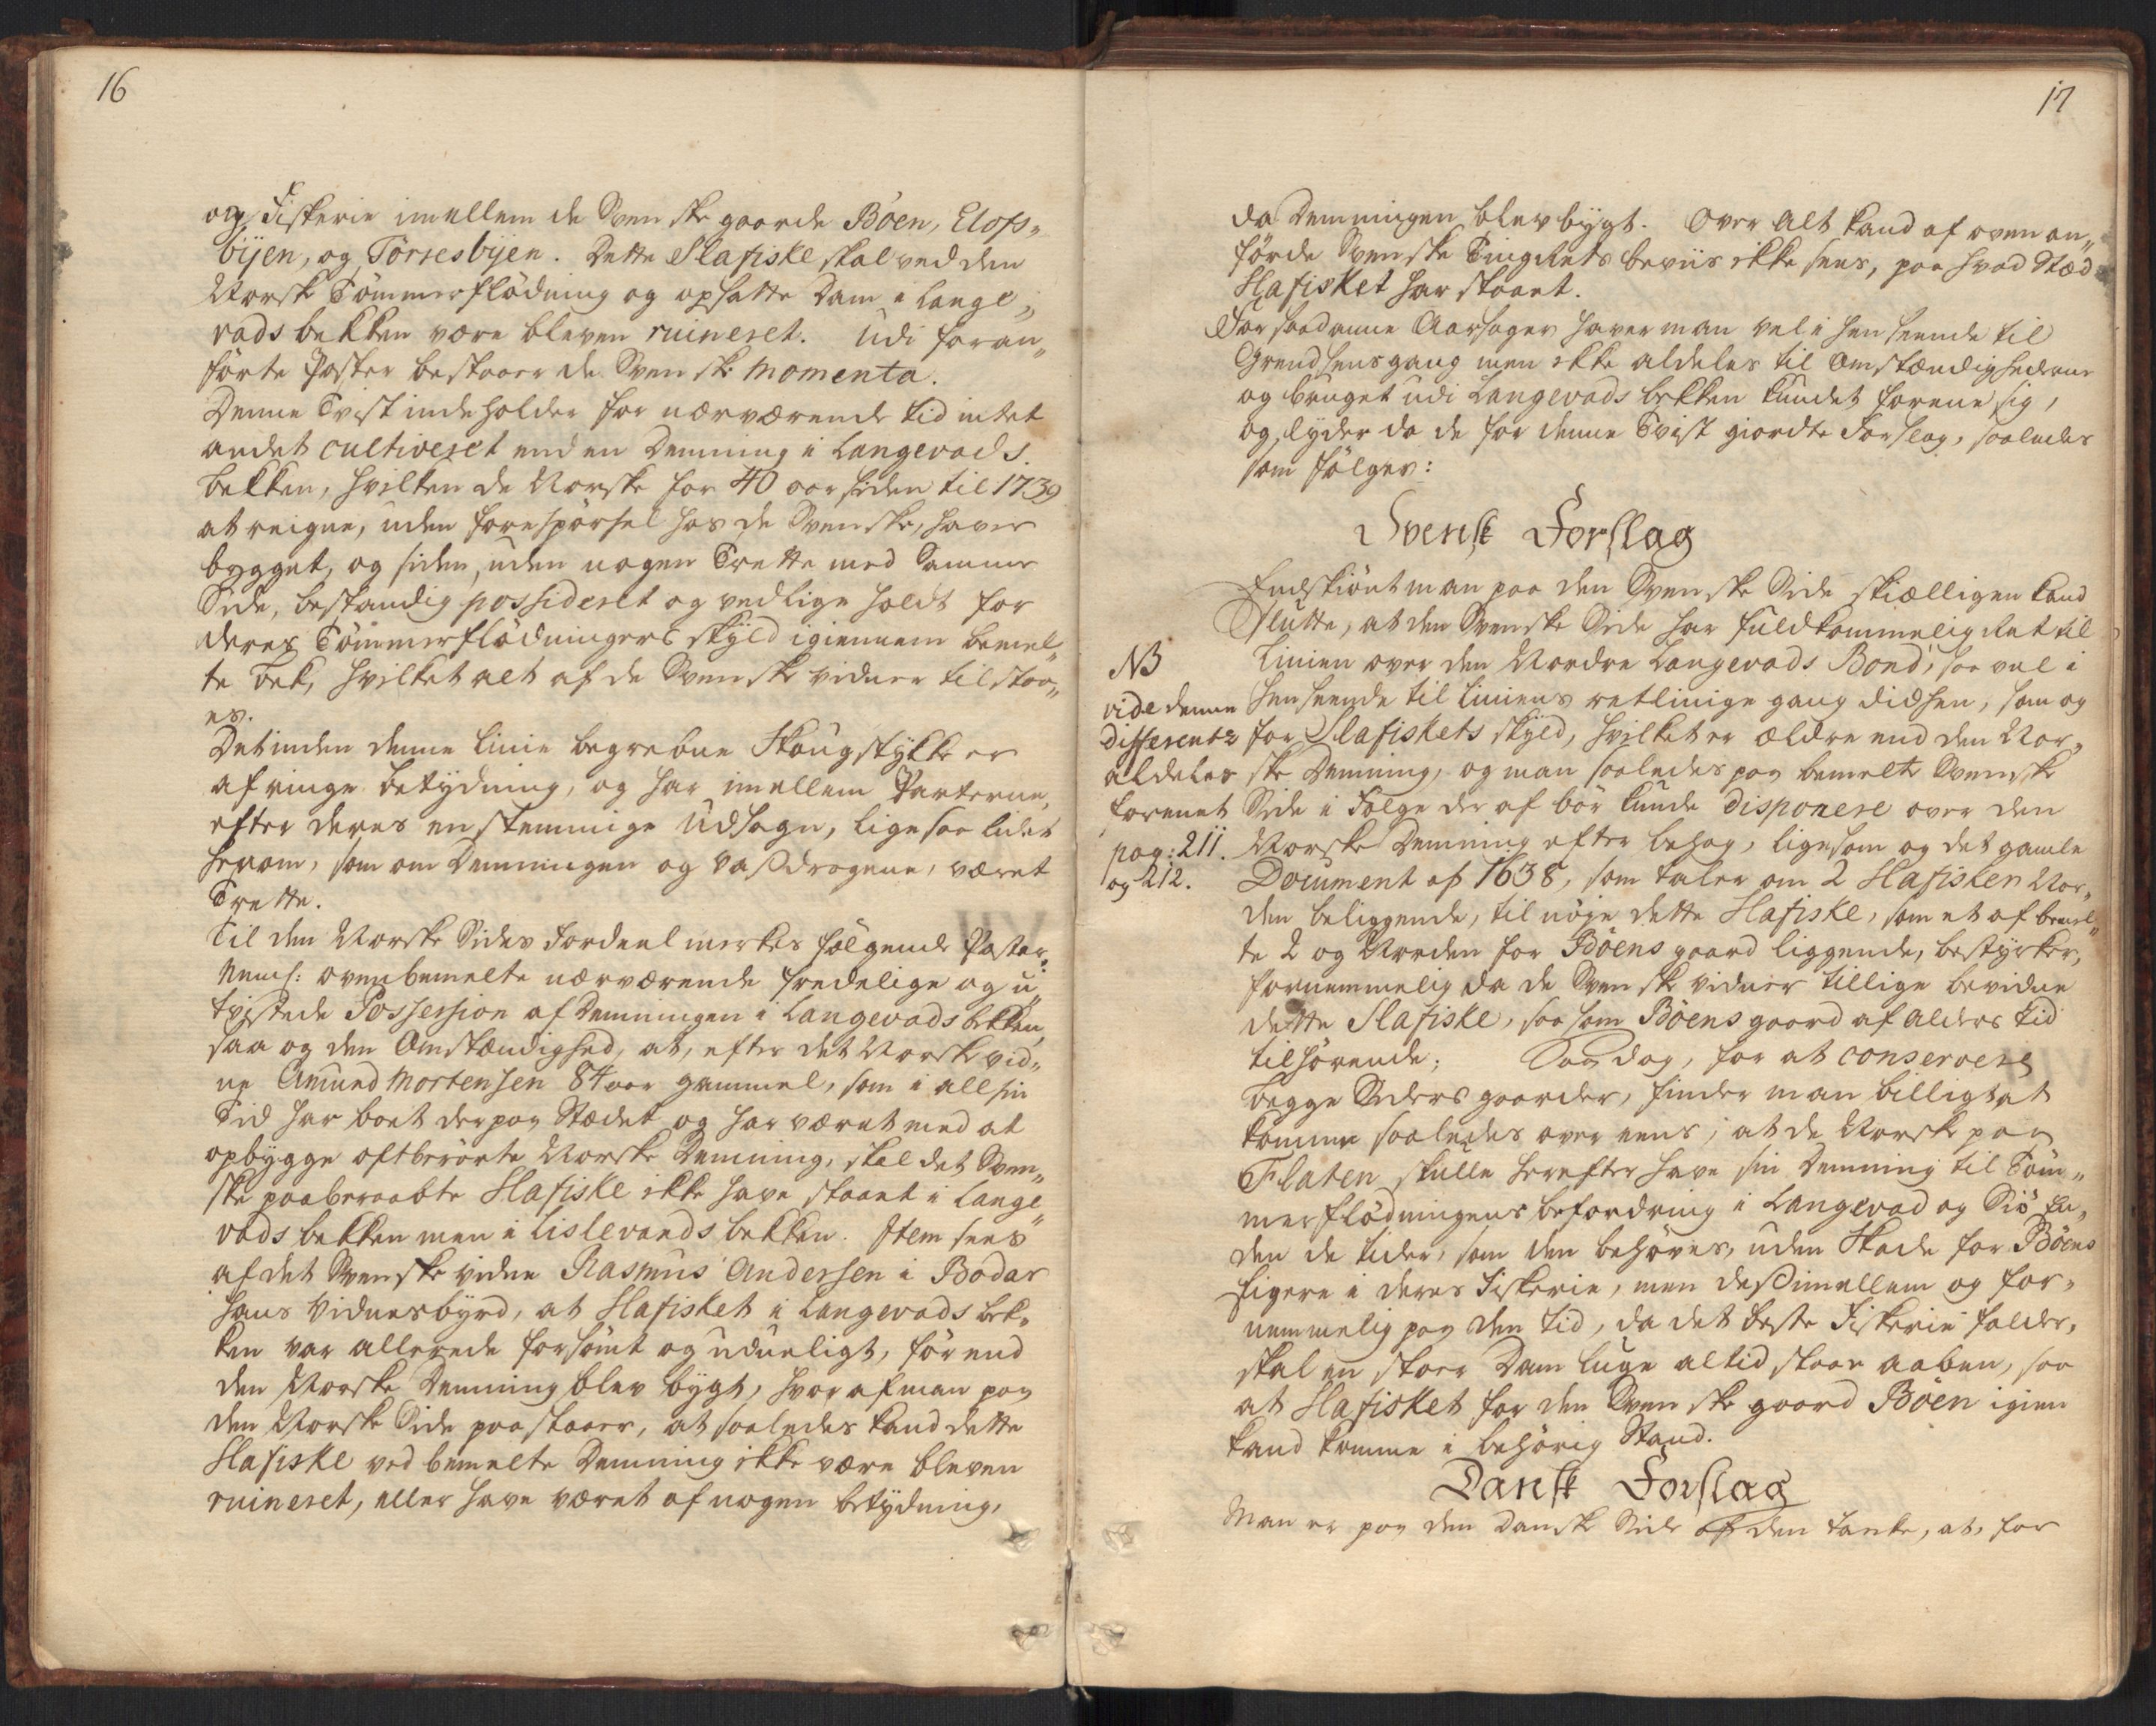 16
og Fiskerie imellem de Svenske gaarde Böen, Elofs„
byen, og Törresbyen. Dette Slafiske skal ved den
Norske Tömmerflödning og opsatte Dam i Lange„
vads bekken være bleven ruineret. Udi foran„
förte Poster bestaaer de Svenske Momenta.
Denne Tvist indeholder for nærværende tid intet
andet cultiveret end en Demning i Langevads
bekken, hvilken de Norske for 40 aar siden til 1739
at reigne, uden forespörsel hos de Svenske, haver
bygget, og siden, uden nogen Trette med Samme
Side, bestandig possideret og vedlige holdt for
deres Tömmerflödningers skyld igiennem bemel„
te Bek, hvilket alt af de Svenske vidner tilstaa„
es.
Det inden denne Linie begrebne Skougstykke er
af ringe betydning, og har imellem Parterne,
efter deres enstemmige Udsagn, ligesaa lidet
herom, som om Demningen og Vaßdragene, været
Trette.
Til den Norske Sides Fordeel merkes fölgende Poster.
Neml: ovenbemelte nærværende fredelige og u„
tvistede Possession af Demningen i Langevads bekken,
saa og den Omstændighed, at, efter det Norske vid„
ne Amund Mortensen 84 aar gammel, som i all sin
Tid har boet der paa Stædet og har været med at
opbygge oftberörte Norske Demning, skal det Sven„
ske paaberaabte Slafiske ikke have staaet i Lange„
vads bekken men i Lislevands bekken. Item sees
af det Svenske vidne Rasmus Andersen i Bodar
hans Vidnesbyrd, at Slafisket i Langevads bek„
ken var allerede forsömt og udueligt, förend
den Norske Demning blev bygt, hvoraf man paa
den Norske Side paastaaer, at saaledes kand dette
Slafiske ved bemelte Demning ikke være bleven
ruineret, eller have været af nogen betydning,
17
da Demningen blev bygt. Over alt kand af oven an„
förde Svenske Tingrets beviis ikke sees, paa hvad Stæd
Slafisket har staaet.
For saadanne Aarsager haver man vel i henseende til
Grendsensgang men ikke aldeles til Omstændighederne
og bruget udi Langevads bekken kundet forene sig,
og lyder da de for denne Tvist giordte Forslag, saaledes
som fölger:
Svensk Forslag
Endskiönt man paa den Svenske Side skielligen kand
slutte, at den Svenske Side har fuldkommelig Ret til
Linien over den Nordre Langevads Bond, saa vel i
henseende til Liniens retlinige gang didhen, som og
for Slafiskets skyld, hvilket er ældre end den Nor„
ske Demning, og man saaledes paa bemelte Svenske
Side i Fölge der af bör kunde disponere over den
Norske Demning efter behag, ligesom og det gamle
Document af 1638, som taler om 2 Slafisken Nor„
den beliggende, til nöje dette Slafiske, som et af bemel„
te 2 og Norden for Böens gaard liggende, bestyrker,
fornemmelig da de Svenske vidner tillige bevidne
dette Slafiske, saasom Böens gaard af Alders tid
tilhörende; Saa dog, for at conservere
begge Siders gaarder, finder man billigt at
komme saaledes over eens, at de Norske paa
Flaten skulle herefter have sin Demning til Töm„
merflödningens befordring i Langevad og Siö En„
den de tider, som den behöves, uden Skade for Böens
Eigere i deres Fiskerie, men deßimellem og for„
nemmelig paa den tid, da det beste Fiskerie falder,
skal en stoer Dam Luge altid staae aaben, saa
at Slafisket for den Svenske gaard Böen igien
kand komme i behörig Stand.
Dansk Forslag
Man er paa den Danske Side af den tanke, at, for
NB
vide denne
differentz
aldeles
forenet
pag: 211.
og 212.